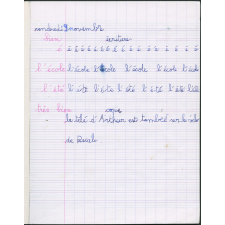 vendredi 9 novembre
bien écriture
é é é é é é é é é é é é é
l'école l'école l'école l'école l'école l'école
l'été l'été l'été l'été l'été l'été
très bien copie
le vélo d'Arthur est tombé sur le vélo
de